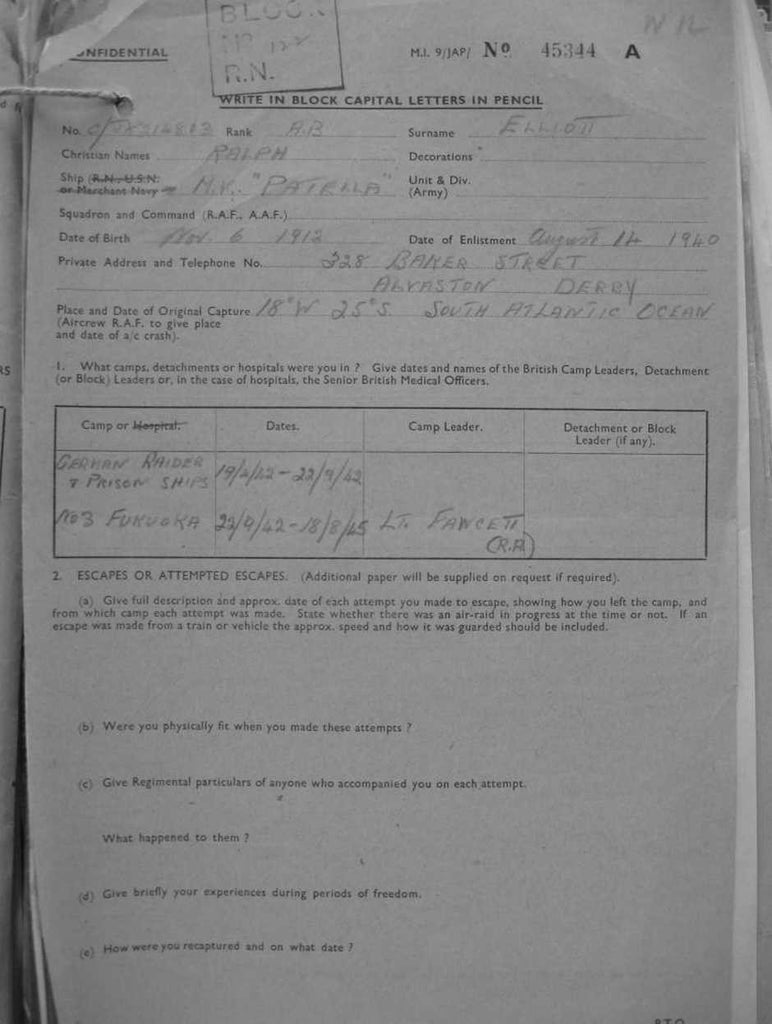 BLOCK
R.N.
CONFIDENTIAL M.I. 9/JAP/ No 45344 A
WRITE IN BLOCK CAPITAL LETTERS IN PENCIL
No. Rank A.B Surname ELLIOTT
Christian Names RALPH Decorations
Ship (R.N., U.S.N. or Merchant Navy M.V. "PATELLA" Unit & Div. (Army)
Squadron and Command (R.A.F., A.A.F.)
Date of Birth Nov. 6 1912 Date of Enlistment August 14 1940
Private Address and Telephone No. 328 BAKER STREET
ALVASTON DERBY
Place and Date of Original Capture 18°W 25°S. SOUTH ATLANTIC OCEAN
(Aircrew R.A.F. to give place
and date of a/c crash).
1. What camps, detachments or hospitals were you in ? Give dates and names of the British Camp Leaders, Detachment
(or Block) Leaders or, in the case of hospitals, the Senior British Medical Officers.
Camp or Hospital. Dates. Camp Leader. Detachment or Block
Leader (if any).
GERMAN RAIDER
& PRISON SHIPS 19/4/42 – 22/9/42
No 3 FUKUOKA 22/9/42 – 18/8/45 LT. FAWCETT
(R.A)
2. ESCAPES OR ATTEMPTED ESCAPES. (Additional paper will be supplied on request if required).
(a) Give full description and approx. date of each attempt you made to escape, showing how you left the camp, and
from which camp each attempt was made. State whether there was an air-raid in progress at the time or not. If an
escape was made from a train or vehicle the approx. speed and how it was guarded should be included.
(b) Were you physically fit when you made these attempts ?
(c) Give Regimental particulars of anyone who accompanied you on each attempt.
What happened to them ?
(d) Give briefly your experiences during periods of freedom.
(e) How were you recaptured and on what date ?
P.T.O.